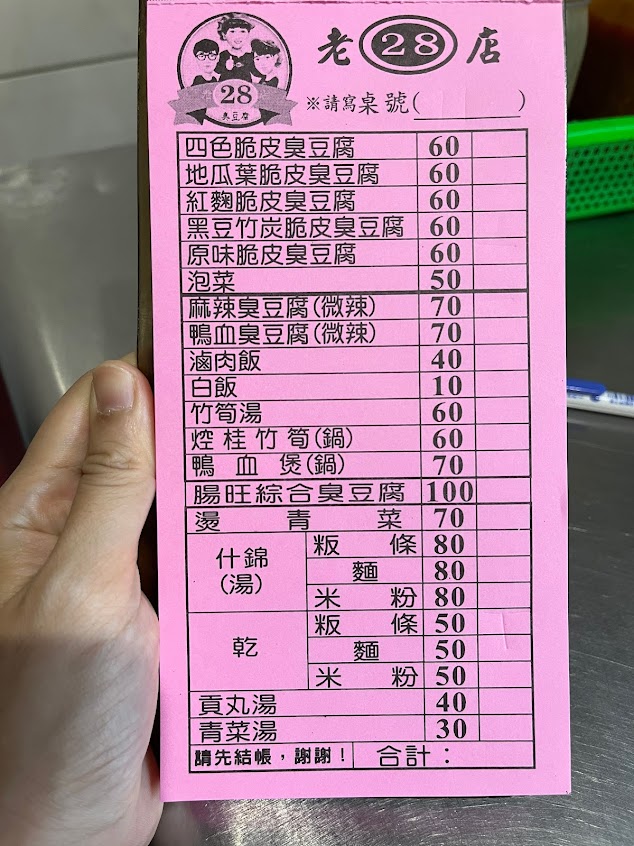 老 28 店
28
臭豆腐
※請寫桌號( )
四色脆皮臭豆腐 60
地瓜葉脆皮臭豆腐 60
紅麴脆皮臭豆腐 60
黑豆竹炭脆皮臭豆腐 60
原味脆皮臭豆腐 60
泡菜 50
麻辣臭豆腐(微辣) 70
鴨血臭豆腐(微辣) 70
滷肉飯 40
白飯 10
竹筍湯 60
焢桂竹筍(鍋) 60
鴨血煲(鍋) 70
腸旺綜合臭豆腐 100
燙青菜 70
什錦(湯) 粄條 80
麵 80
米粉 80
乾 粄條 50
麵 50
米粉 50
貢丸湯 40
青菜湯 30
請先結帳，謝謝！ 合計：